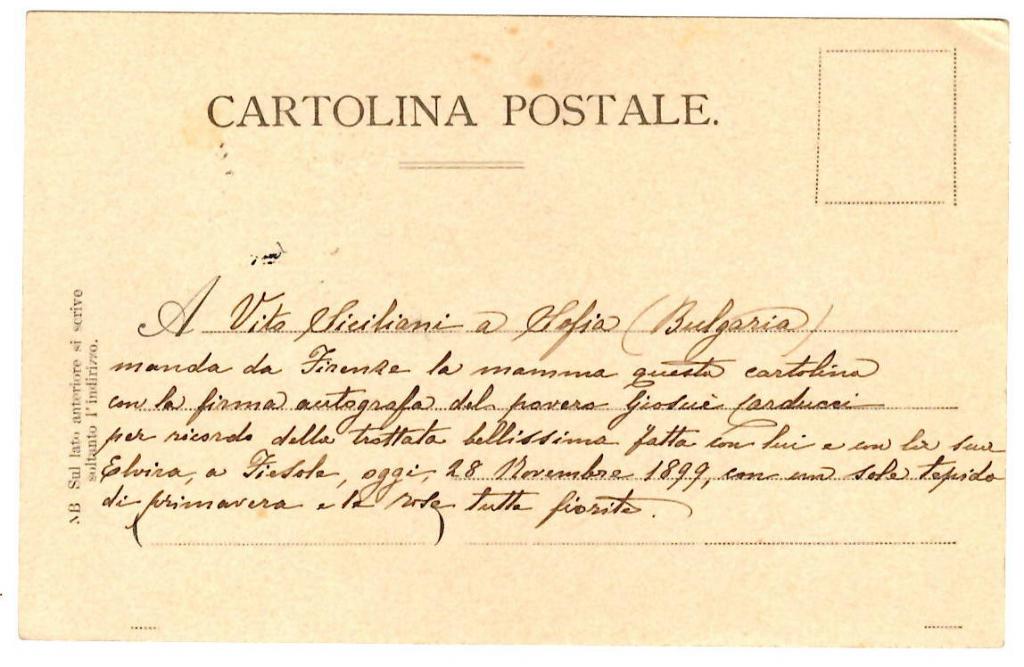 CARTOLINA POSTALE.
NB Sul lato anteriore si scrive
soltanto l'indirizzo.
A Vito Siciliani a Sofia (Bulgaria)
manda da Firenze la mamma questa cartolina
con la firma autografa del povero Giosuè Carducci
per ricordo della trottata bellissima fatta con lui e con la sua
Elvira, a Fiesole, oggi, 28 Novembre 1899, con un sole tepido
di primavera e le rose tutte fiorite.